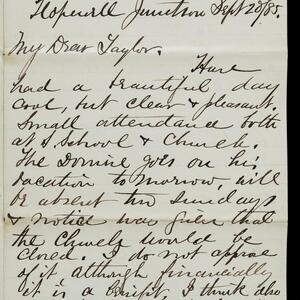 Hopewell Junction Sept 20/85.
My Dear Taylor.
Have
had a beautiful day
cool, but clear & pleasant.
Small attendance both
at S. School & Church.
The Domine goes on his
vacation to morrow, will
be absent two Sundays
& notice was given that
the Church would be
closed. I do not approve
of it although financially
it is a benefit, I think also